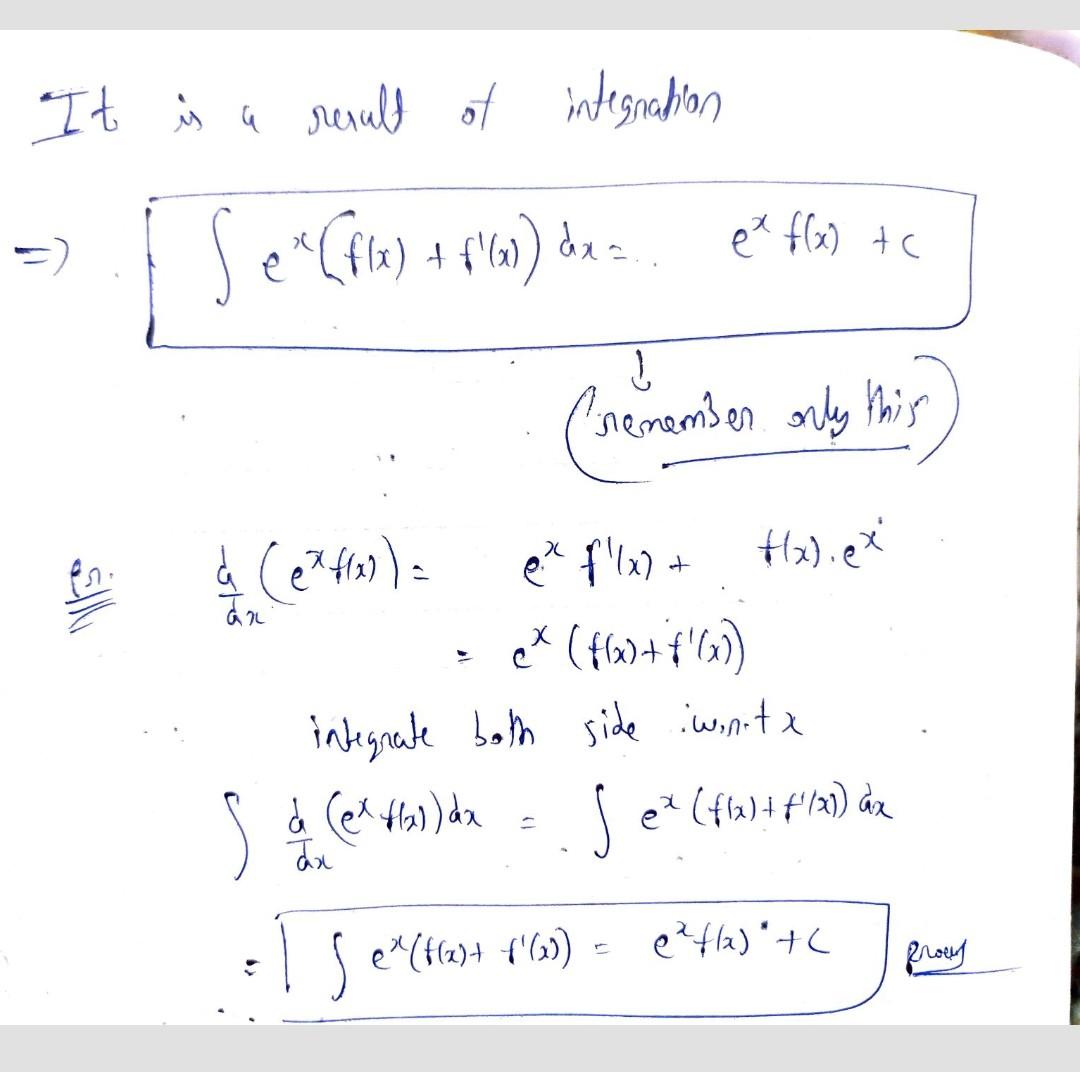 It is a result of integration
=> ∫ e^x (f(x) + f'(x)) dx = .. e^x f(x) + c
↓
(remember only this)
d/dx (e^x f(x)) = e^x f'(x) + f(x).e^x
= e^x (f(x) + f'(x))
integrate both side w.r.t x
∫ d/dx (e^x f(x)) dx = ∫ e^x (f(x) + f'(x)) dx
= ∫ e^x (f(x) + f'(x)) = e^x f(x) + c